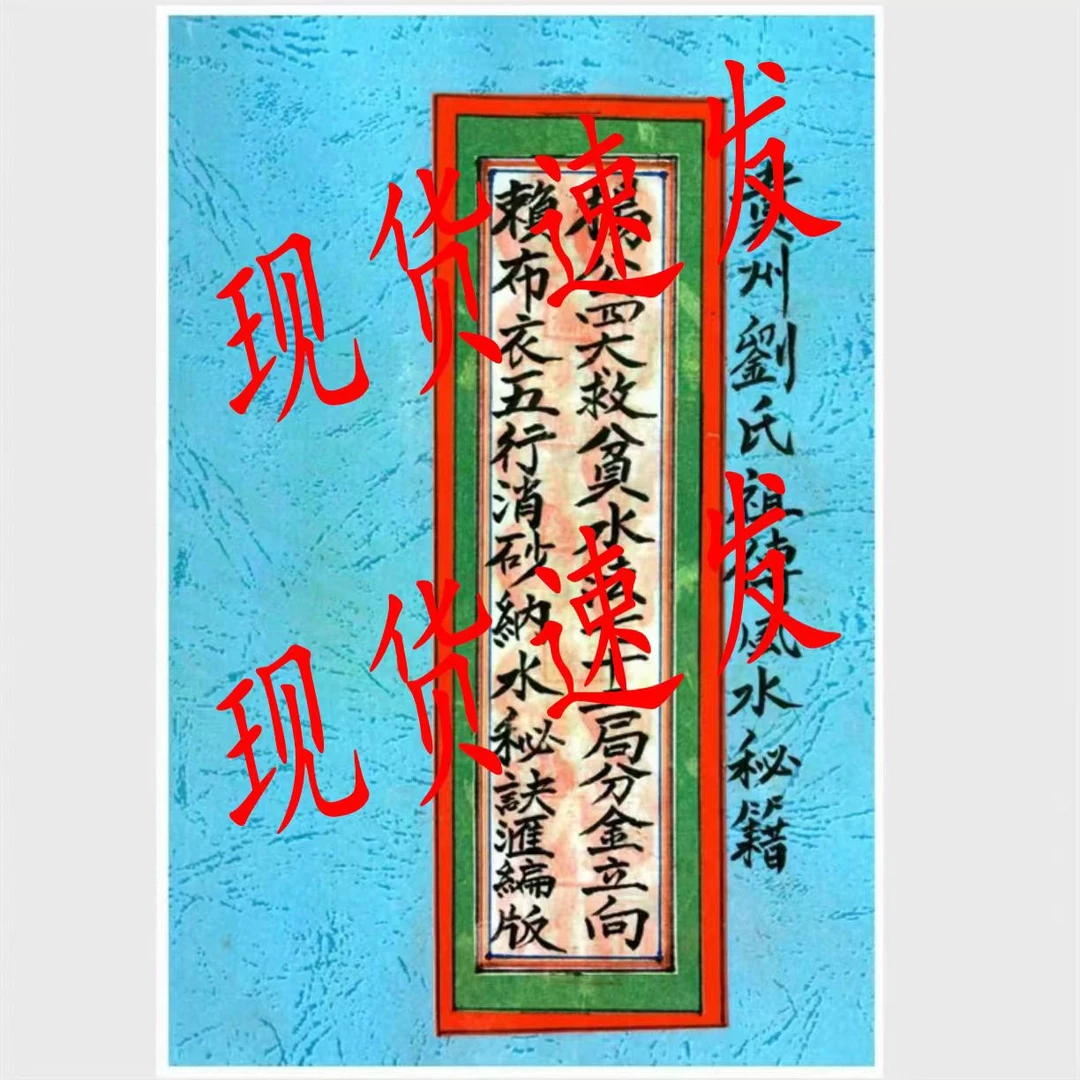 貴州劉氏祖傳風水秘籍
楊公四大救貧水法七十二局分金立向
賴布衣五行消砂納水秘訣滙編版
现货速发
现货速发